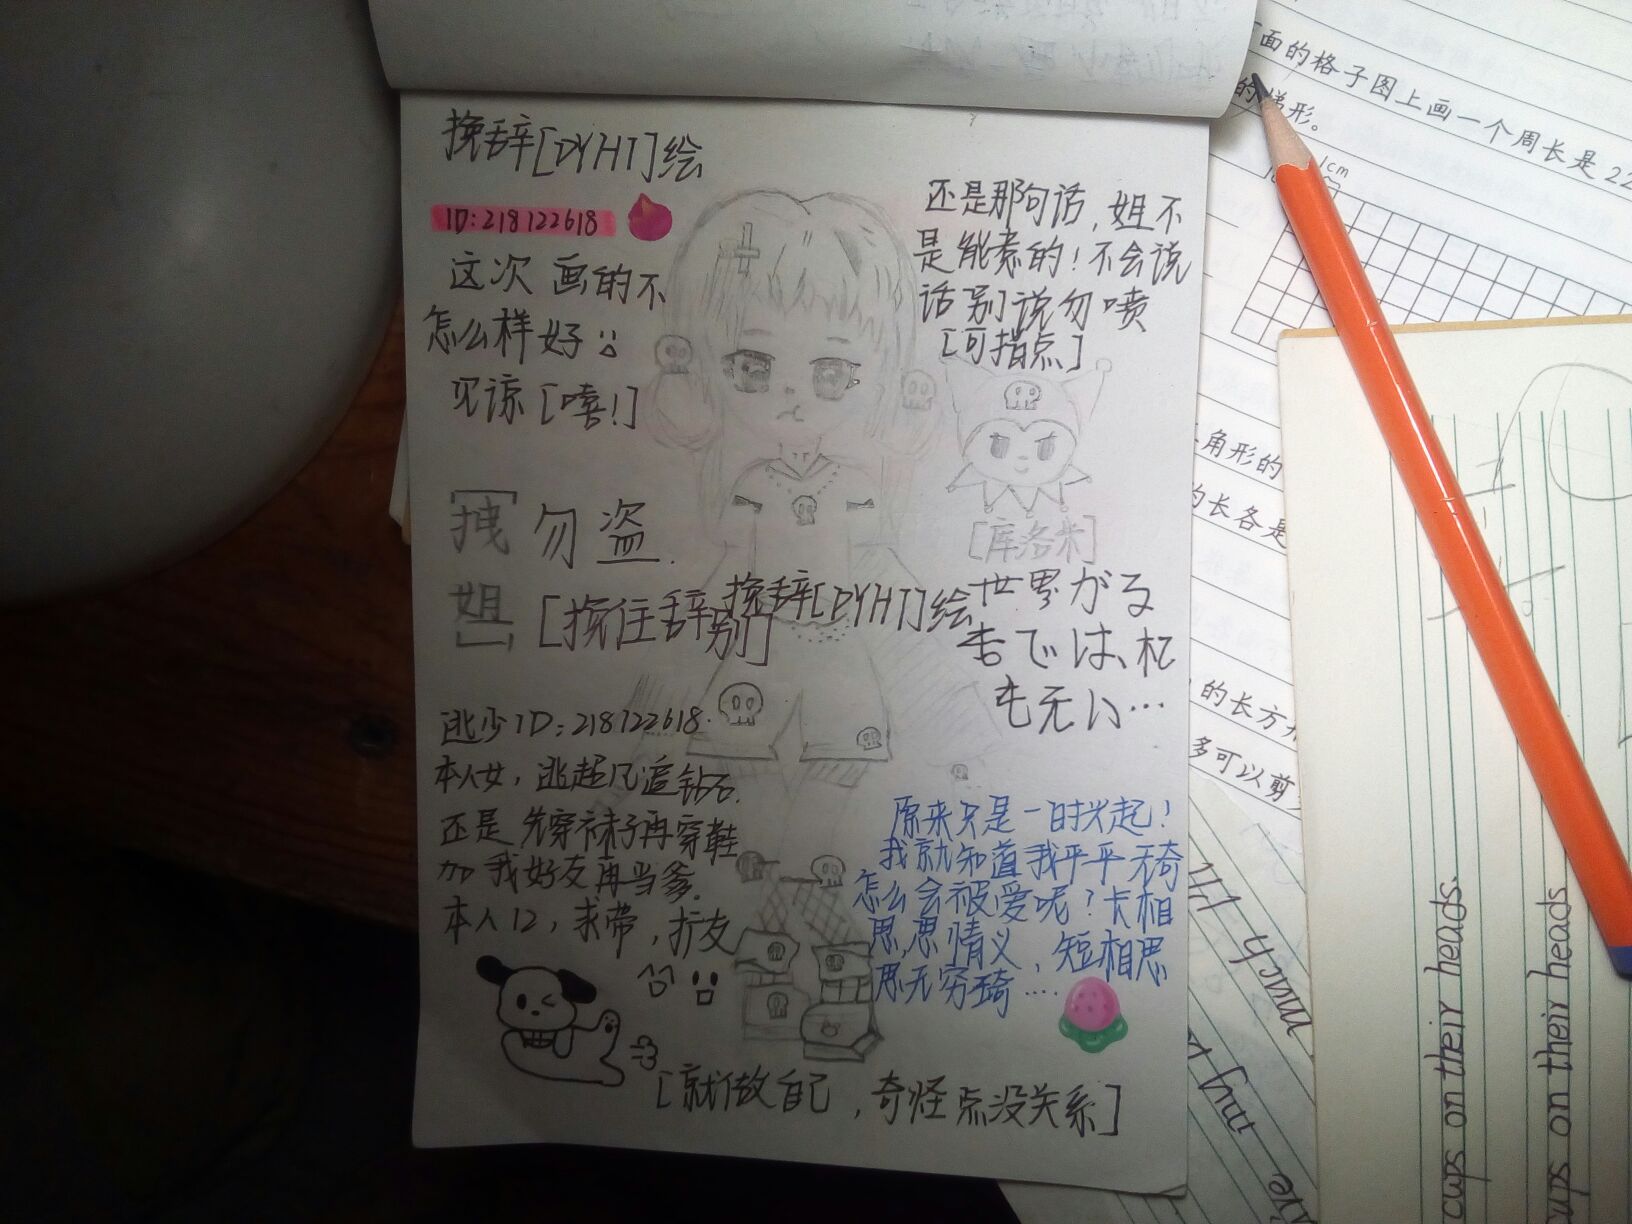 挽辞[DYHT]绘
ID:218122618
这次画的不
怎么样好
见谅[嘻!]
还是那句话,姐不
是能惹的!不会说
话别说勿喷
[可指点]
[拽
姐]
勿盗.
[挽住辞别]
挽辞[DYHT]绘
[库洛米]
世界がる
杏では、松
も无い…
逃少ID:218122618.
本人女,逃超凡追钻石.
还是先穿袜子再穿鞋
加我好友再当爹.
本人12,求带,扩友
原来只是一时兴起!
我就知道我平平无奇
怎么会被爱呢?卡相
思,思情义,短相思
思无穷琦....
[就做自己,奇怪点没关系]
面的格子图上画一个周长是22
的梯形。
1cm
角形的
的长各是
的长方
多可以剪
much
my
cups on their heads.
cups on their heads